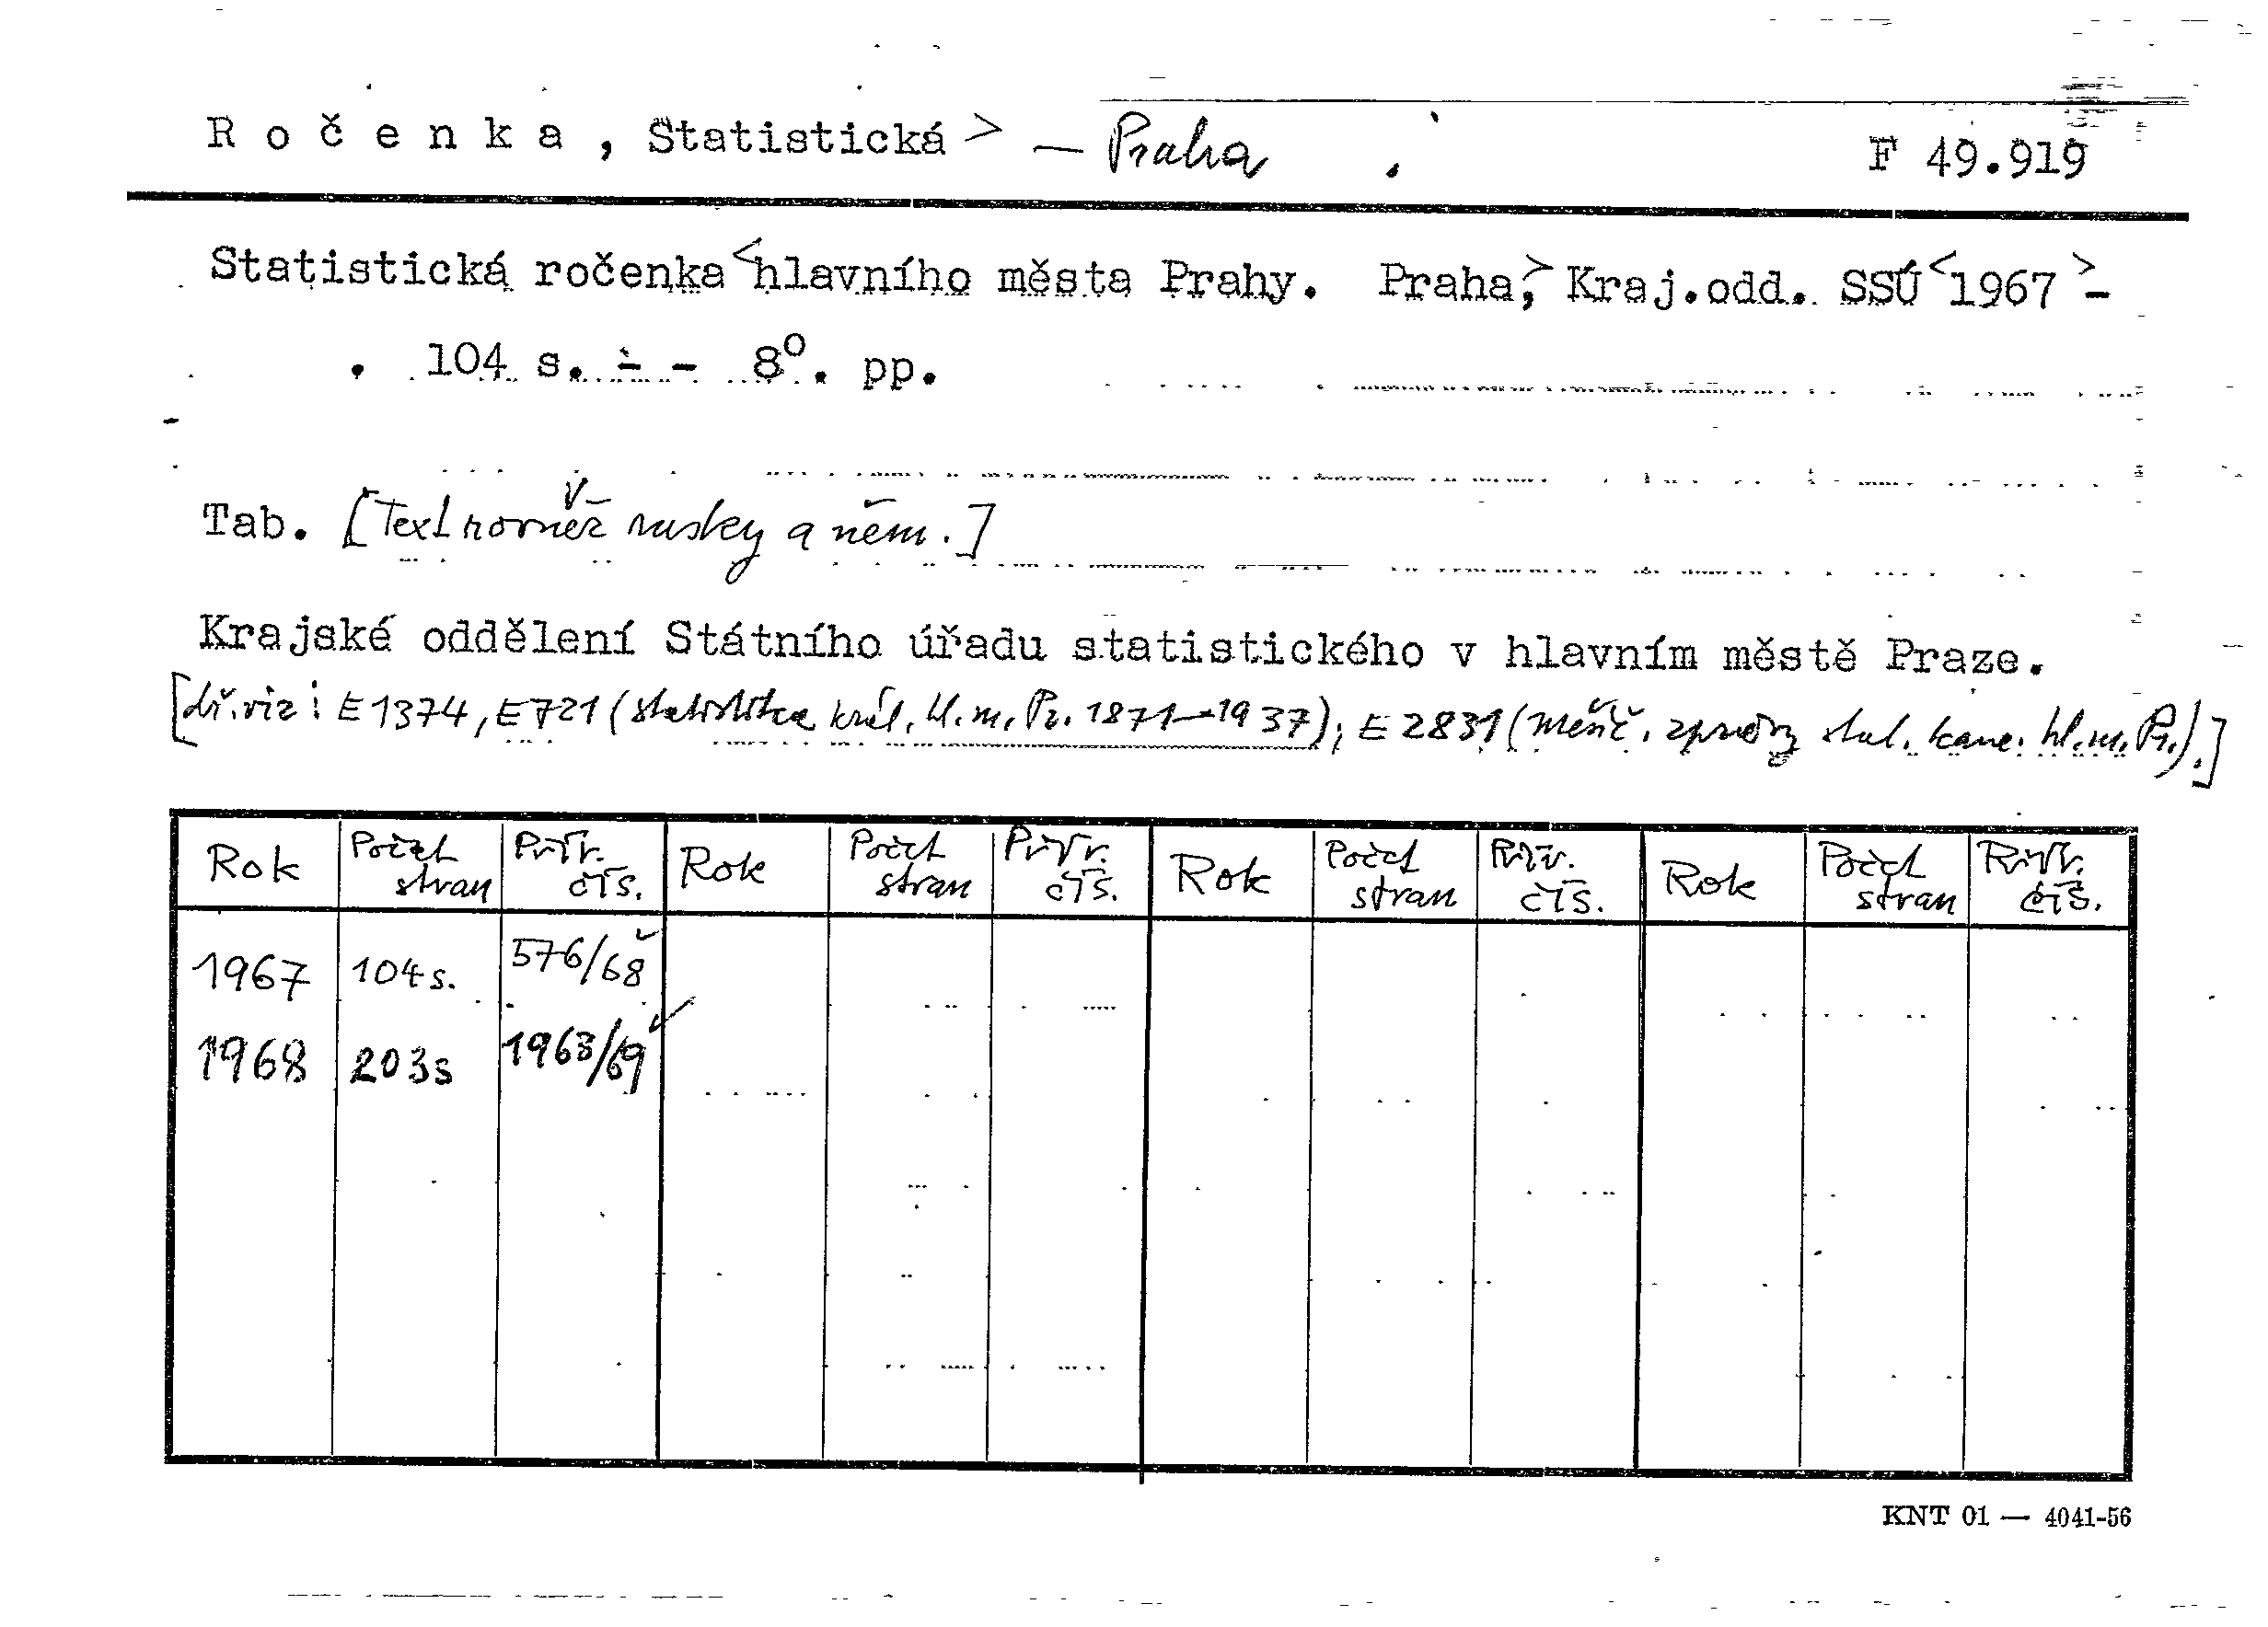 Ročenka, Statistická > — Praha F 49.919
Statistická ročenka < hlavního města Prahy. Praha, > Kraj.odd. SSÚ < 1967 > -
. 104 s. - - 8°. pp.
Tab. [Text rovněž rusky a něm.]
Krajské oddělení Státního úřadu statistického v hlavním městě Praze.
[dř. viz: E 1374, E 721 (statistika král. hl. m. Pr. 1871–1937); E 2831 (Měsíč. zprávy stat. kanc. hl. m. Pr.).]
Rok Počet stran Přír. čís. Rok Počet stran Přír. čís. Rok Počet stran Přír. čís. Rok Počet stran Přír. čís.
1967 104 s. 576/68
1968 203 s 1963/69
KNT 01 — 4041-56